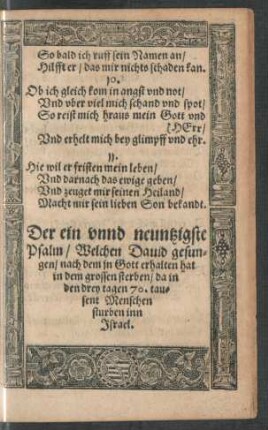 So bald ich ruff sein Namen an/
Hilfft er / das mir nichts schaden kan.
10.
Ob ich gleich kom in angst vnd not/
Vnd vber viel mich schand vnd spot/
So reist mich hraus mein Gott vnd
[HErr/
Vnd erhelt mich bey glimpff vnd ehr.
11.
Hie wil er fristen mein leben/
Vnd darnach das ewige geben/
Vnd zeuget mir seinen Heiland/
Macht mir sein lieben Son bekandt.
Der ein vnnd neuntzigste
Psalm / Welchen Dauid gesun-
gen / nach dem jn Gott erhalten hat
in dem grossen sterben / da in
den drey tagen 70. tau-
sent Menschen
sturben inn
Israel.